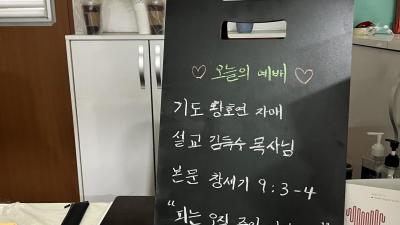 ♡ 오늘의 예배 ♡
기도 황호연 자매
설교 김득수 목사님
본문 창세기 9:3-4
“피는 오직